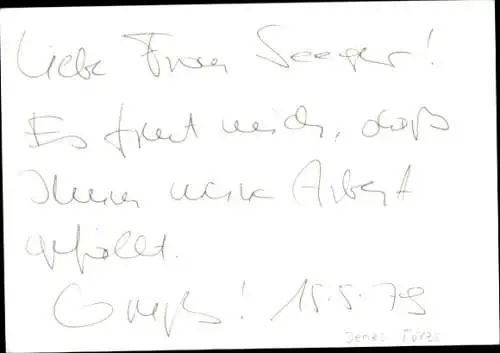 Liebe Frau Seeger!
Es freut mich, daß
Ihnen meine Arbeit
gefällt.
Gruß! 15.5.79
Jenes Török